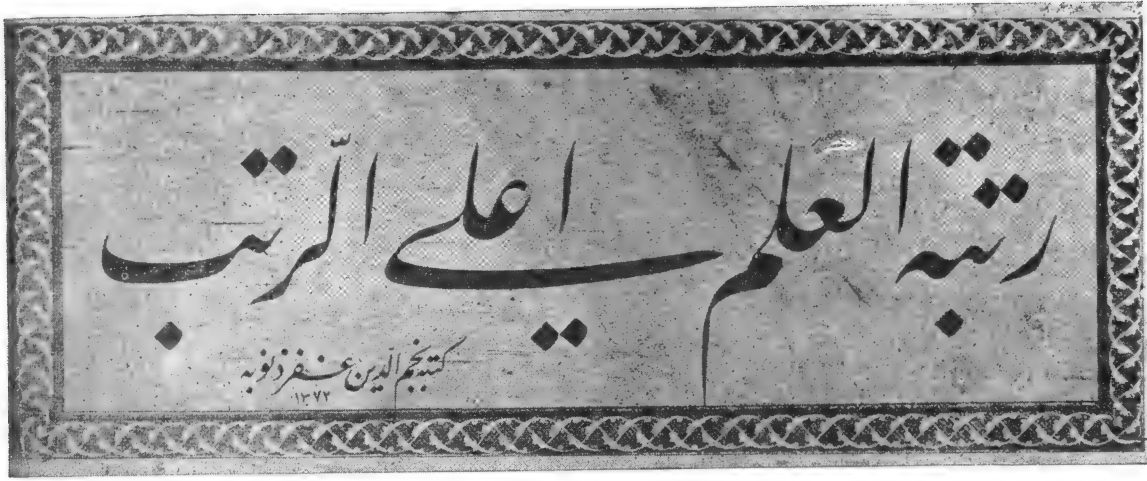 رتبة العلم اعلى الرّتب
كتبه نجم الدّين غفر ذنوبه
١٣٧٢